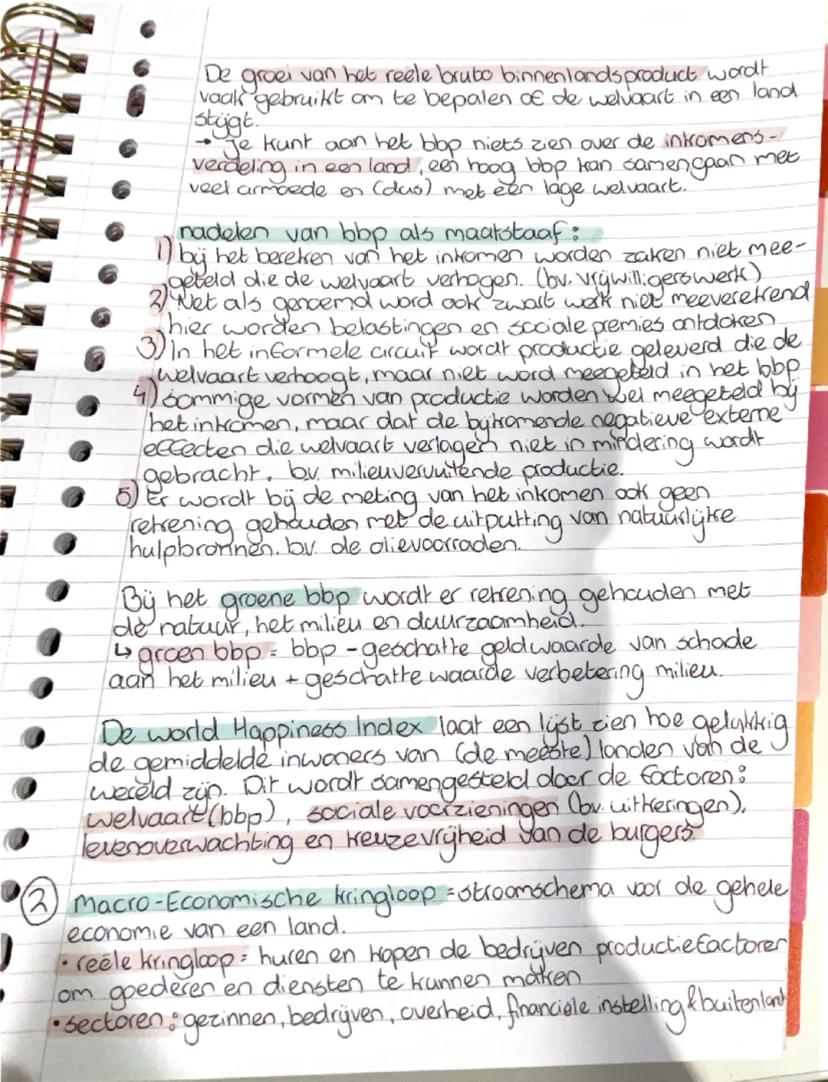 De groei van het reële bruto binnenlandsproduct wordt
vaak gebruikt om te bepalen of de welvaart in een land
stijgt.
→ Je kunt aan het bbp niets zien over de inkomens-
verdeling in een land, een hoog bbp kan samengaan met
veel armoede en (dus) met een lage welvaart.
nadelen van bbp als maatstaaf:
1) bij het bereken van het inkomen worden zaken niet mee-
geteld die de welvaart verhogen. (bv. vrijwilligerswerk)
2) Net als genoemd word ook zwart werk niet meeverekend
hier worden belastingen en sociale premies ontdoken
3) In het informele circuit wordt productie geleverd die de
welvaart verhoogt, maar niet word meegeteld in het bbp
4) Sommige vormen van productie worden wel meegeteld bij
het inkomen, maar dat de bijkomende negatieve externe
effecten die welvaart verlagen niet in mindering wordt
gebracht. bv. milieuvervuilende productie.
5) Er wordt bij de meting van het inkomen ook geen
rekening gehouden met de uitputting van natuurlijke
hulpbronnen. bv. de olievoorraden.
Bij het groene bbp wordt er rekening gehouden met
de natuur, het milieu en duurzaamheid.
↳ groen bbp = bbp - geschatte geldwaarde van schade
aan het milieu + geschatte waarde verbetering milieu.
De world Happiness Index laat een lijst zien hoe gelukkig
de gemiddelde inwoners van (de meeste) landen van de
wereld zijn. Dit wordt samengesteld door de factoren:
welvaart (bbp), sociale voorzieningen (bv. uitkeringen),
levensverwachting en keuzevrijheid van de burgers
2 Macro-Economische kringloop = stroomschema voor de gehele
economie van een land.
• reële kringloop = huren en kopen de bedrijven productiefactoren
om goederen en diensten te kunnen maken
• sectoren: gezinnen, bedrijven, overheid, financiële instelling & buitenland